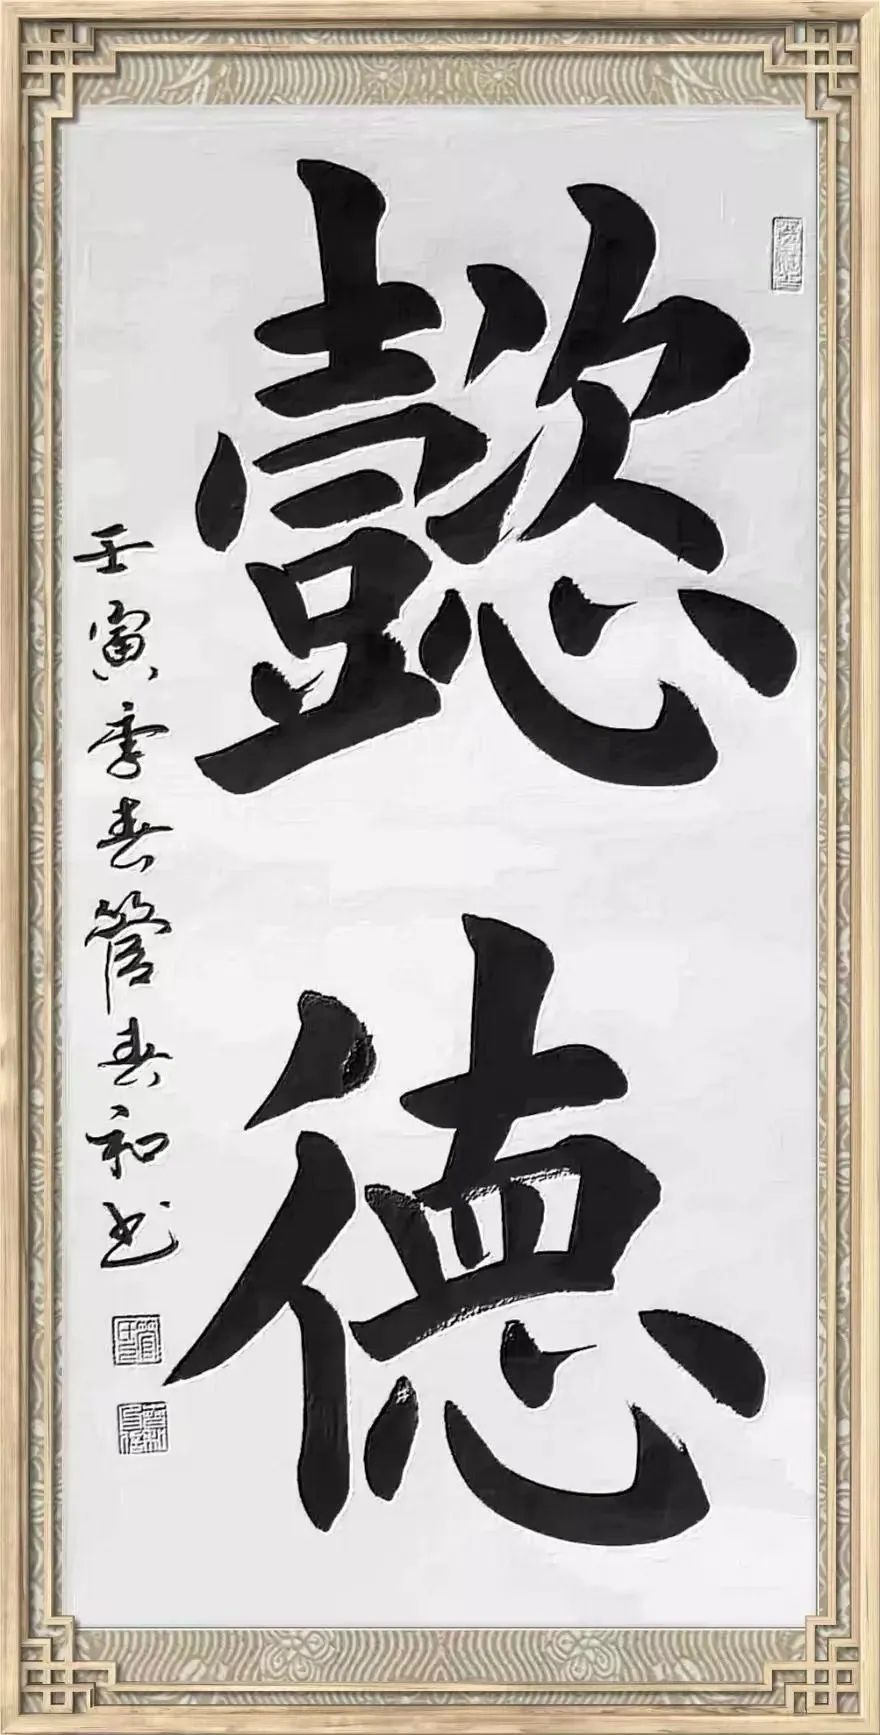 懿德
壬寅季春管春和书